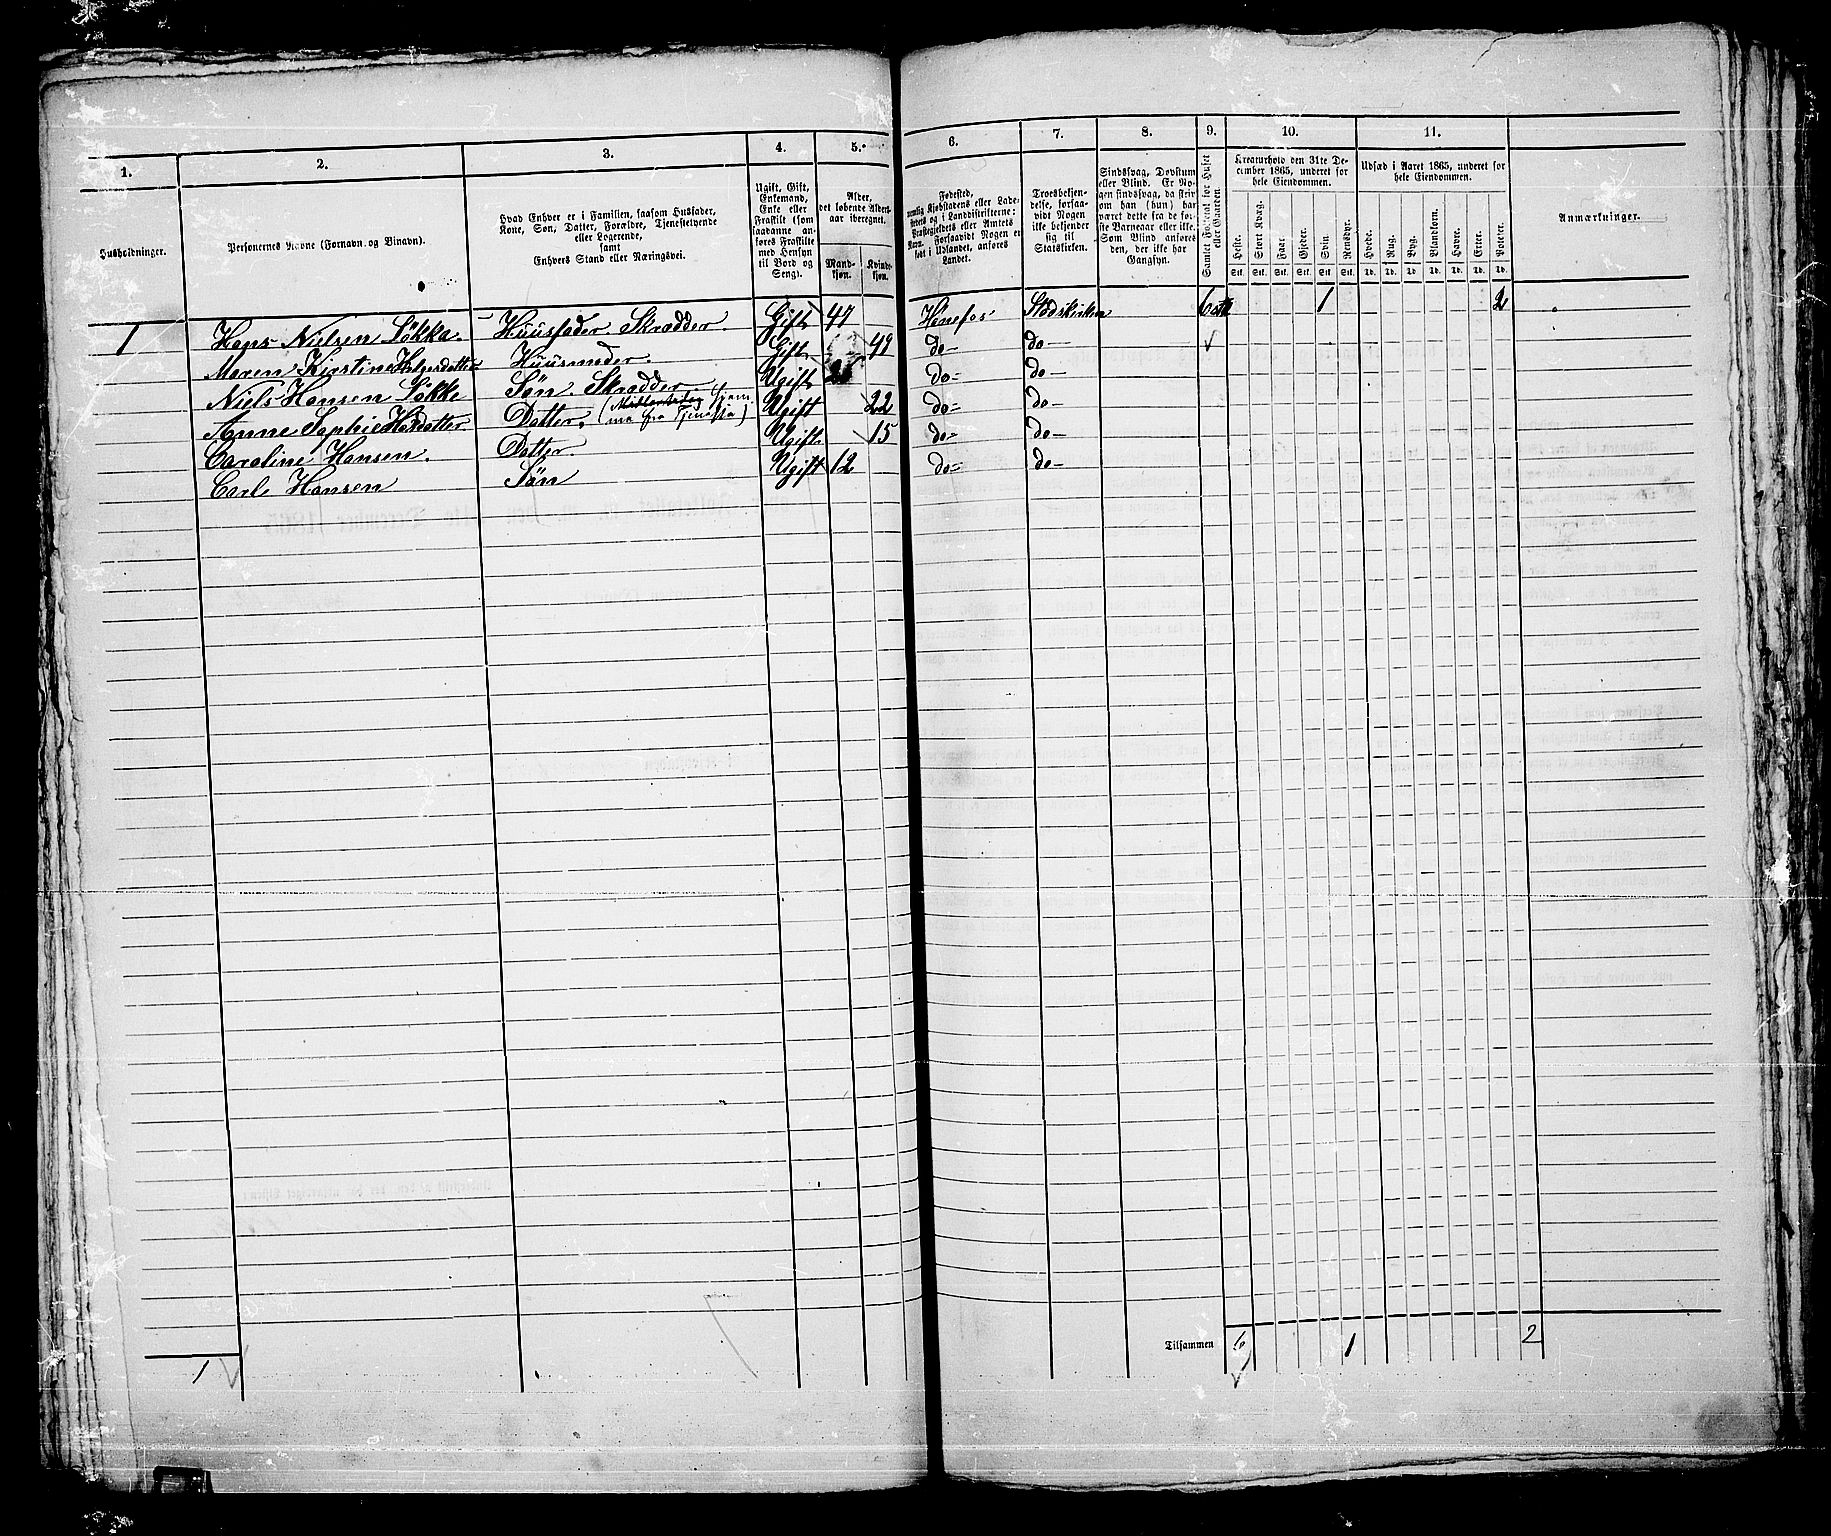 1. 2. 3. 4. 5. 6. 7. 8. 9. 10. 11.
Husholdninger.
Personernes Navne (Fornavn og Binavn).
Hvad Enhver er i Familien, saasom Husfader,
Kone, Søn, Datter, Forældre, Tjenestetyende
eller Logerende,
samt
Enhvers Stand eller Næringsvei.
Ugift, Gift,
Enkemand,
Enke eller
Fraskilt (som
saadanne an-
føres Fraskilte
med Hensyn
til Bord og
Seng).
Alder,
det løbende Alders-
aar iberegnet.
Mand-
kjøn.
Kvinde-
kjøn.
Fødested,
nemlig Kjøbstadens eller Lade-
stedets og i Landdistrikterne:
Præstegjeldets eller Amtets
Navn. Forsaavidt Nogen er
født i Udlandet, anføres
Landet.
Troesbekjen-
delse, forsaa-
vidt Nogen
ikke bekjender
sig til
Statskirken.
Sindssvag, Døvstum
eller Blind. Er No-
gen sindssvag, da skriv
om han (hun) har
været dette fra de før-
ste Barneaar eller ikke.
Som Blind anføres
den, der ikke har
Gangsyn.
Samlet Folketal for Huset
eller Gaarden.
Kreaturhold den 31te De-
cember 1865, underet for
hele Eiendommen.
Heste. Stort Kvæg. Faar. Gjeder. Svin. Rensdyr.
Stk. Stk. Stk. Stk. Stk. Stk.
Udsæd i Aaret 1865, underet for
hele Eiendommen.
Hvede. Rug. Byg. Blandkorn. Havre. Erter. Poteter.
Td. Td. Td. Td. Td. Td. Td.
Anmærkninger.
1 Hans Nielsen Løkka. Huusfader. Skrædder. Gift 47 Hønefos Statskirken 6 1 2
Maren Kirstine Helgesdatter Huusmoder. Gift 49 do do
Niels Hansen Løkke Søn. Skrædder Ugift do do
Anne Sophie Hansdatter Datter. (hjem-
me fra Tjeneste) Ugift 22 do do
Caroline Hansen. Datter Ugift 15 do do
Carl Hansen Søn Ugift 12 do do
Tilsammen 6 1 2
1